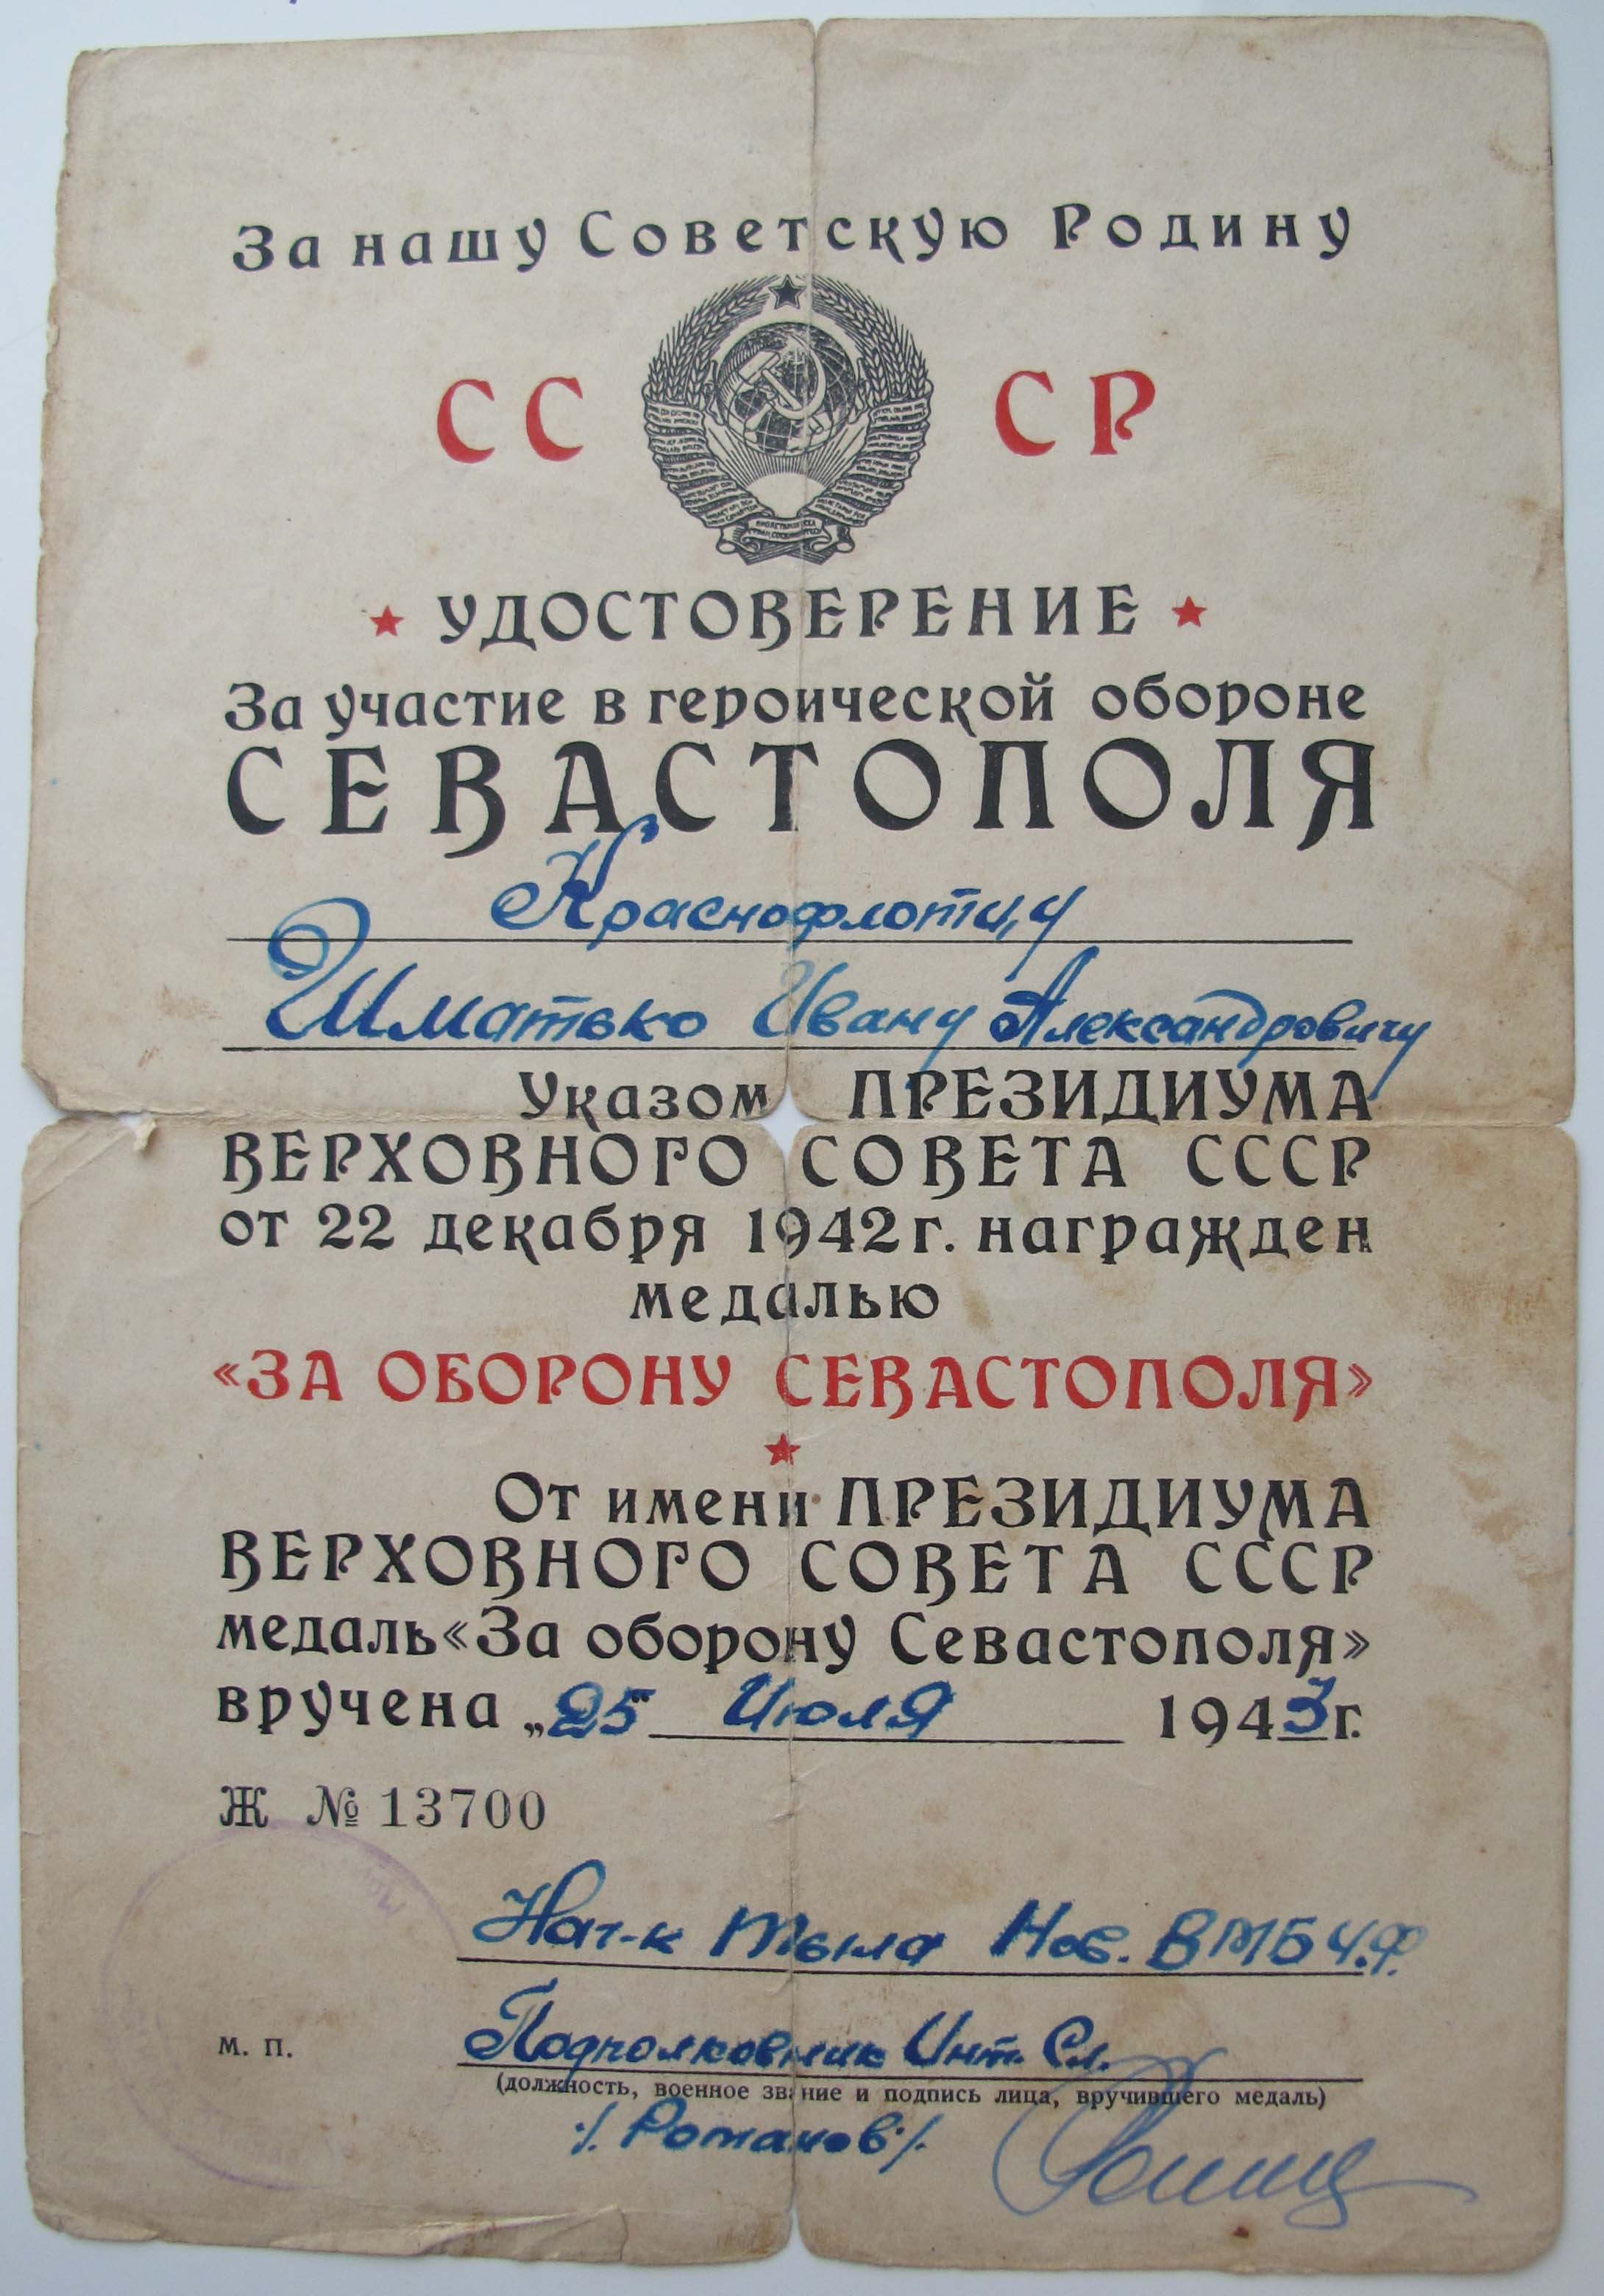 За нашу Советскую Родину
СС СР
УДОСТОВЕРЕНИЕ
За участие в героической обороне
СЕВАСТОПОЛЯ
Краснофлотцу
Шматько Ивану Александровичу
Указом ПРЕЗИДИУМА
ВЕРХОВНОГО СОВЕТА СССР
от 22 декабря 1942 г. награжден
медалью
«ЗА ОБОРОНУ СЕВАСТОПОЛЯ»
От имени ПРЕЗИДИУМА
ВЕРХОВНОГО СОВЕТА СССР
медаль «За оборону Севастополя»
вручена „25" Июля 1943 г.
Ж № 13700
Нач-к Тыла Нов. ВМБ Ч.Ф.
м. п.
Подполковник Инт. Сл.
(должность, военное звание и подпись лица, вручившего медаль)
/. Романов ./